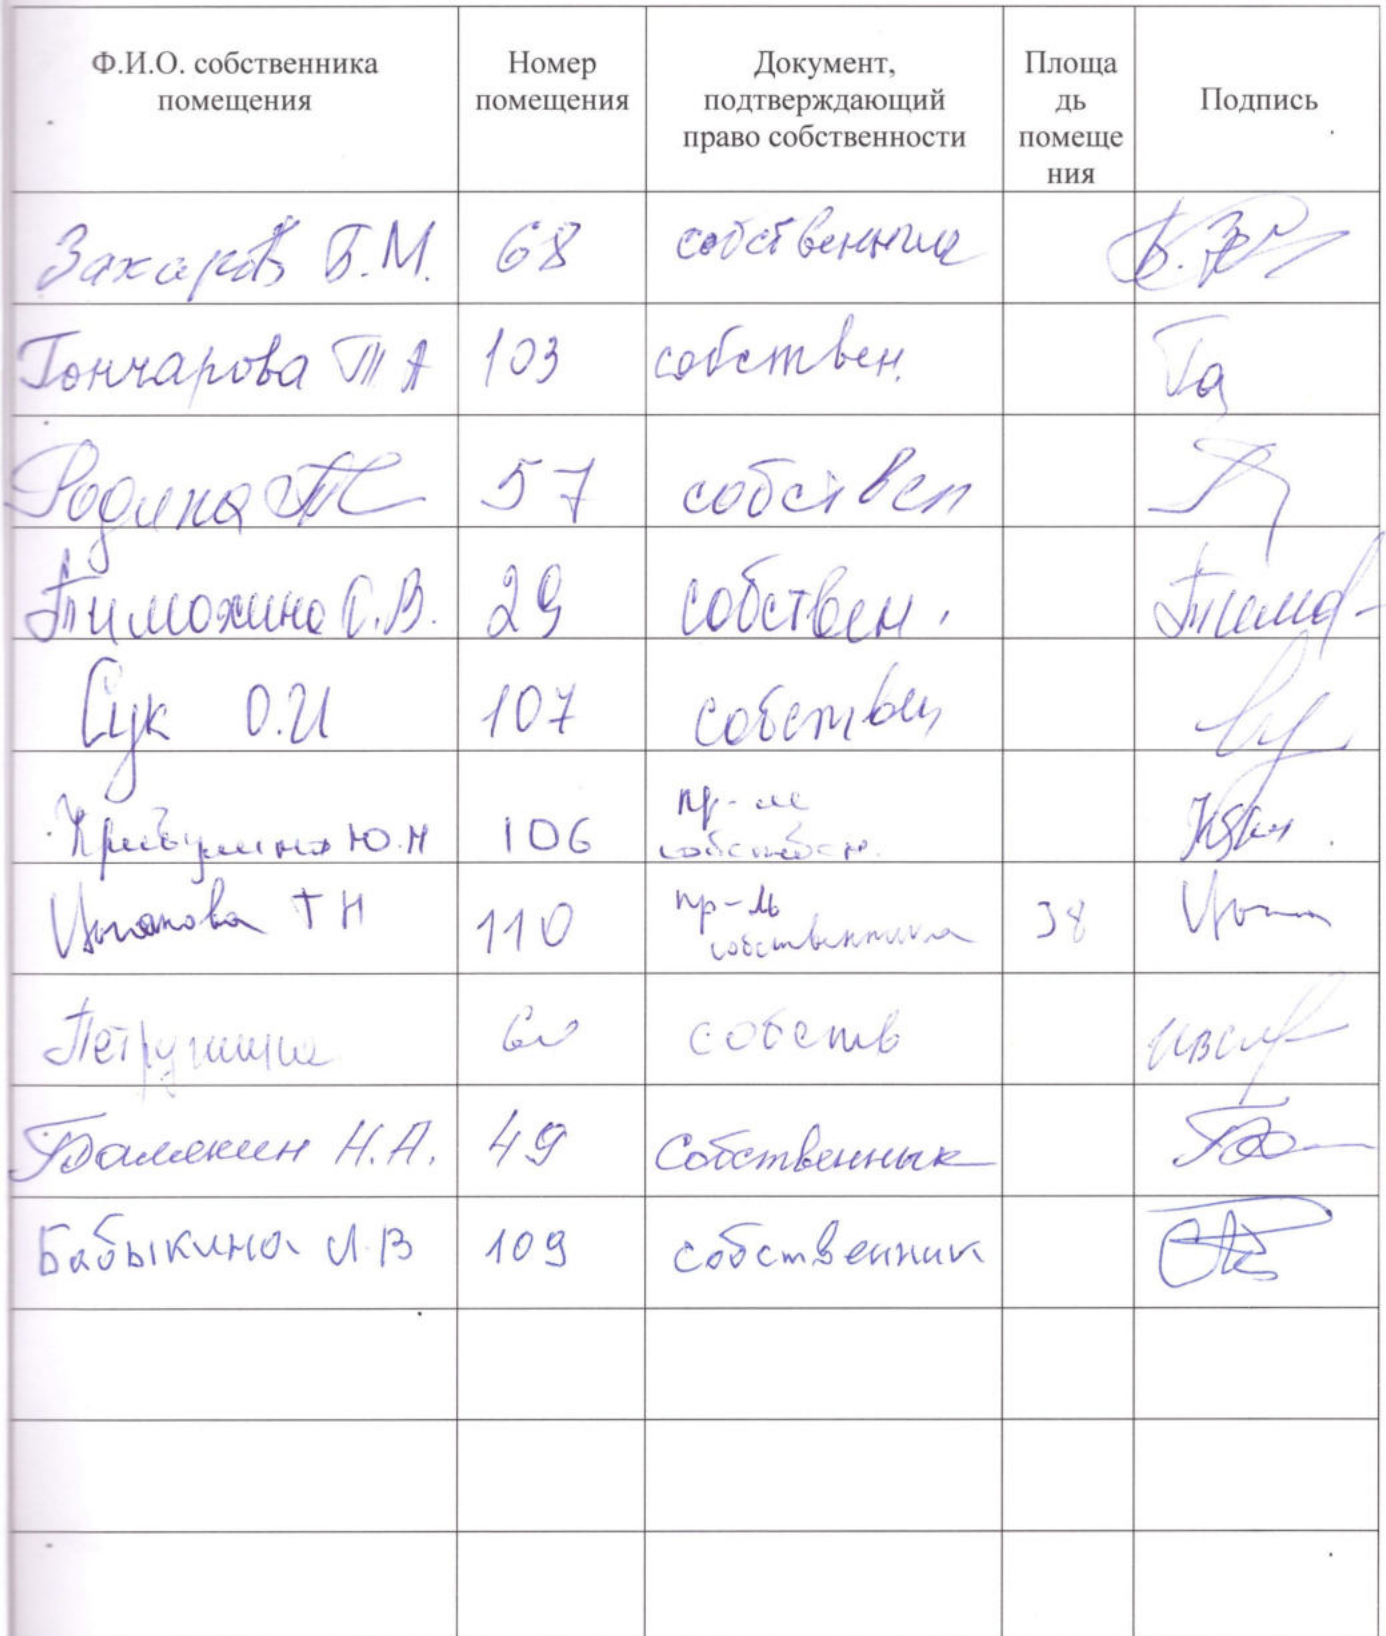 Ф.И.О. собственника
помещения
Номер
помещения
Документ,
подтверждающий
право собственности
Площа
дь
помеще
ния
Подпись
Захаров Б.М. 68 собственник
Гончарова Т А 103 собствен.
Родина 57 собствен
Тимохина С.В. 29 собствен.
Сук О.И 107 собствен
Ю.Н 106 пр-ль
собствен.
Цыганова Т Н 110 пр-ль 38
собственника
60 собств
Н.А. 49 Собственнык
Бабыкина Л.В 109 собственник